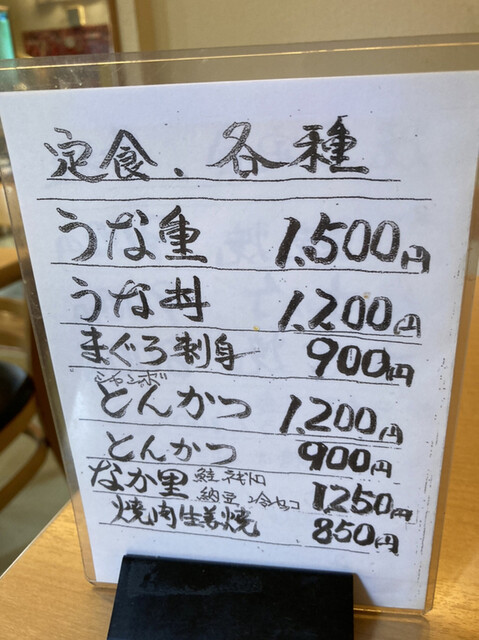 定食、各種
うな重 1,500円
うな丼 1,200円
まぐろ刺身 900円
ジャンボ
とんかつ 1,200円
とんかつ 900円
なか里 鮭 納豆 冷ヤッコ 1250円
焼肉生姜焼 850円